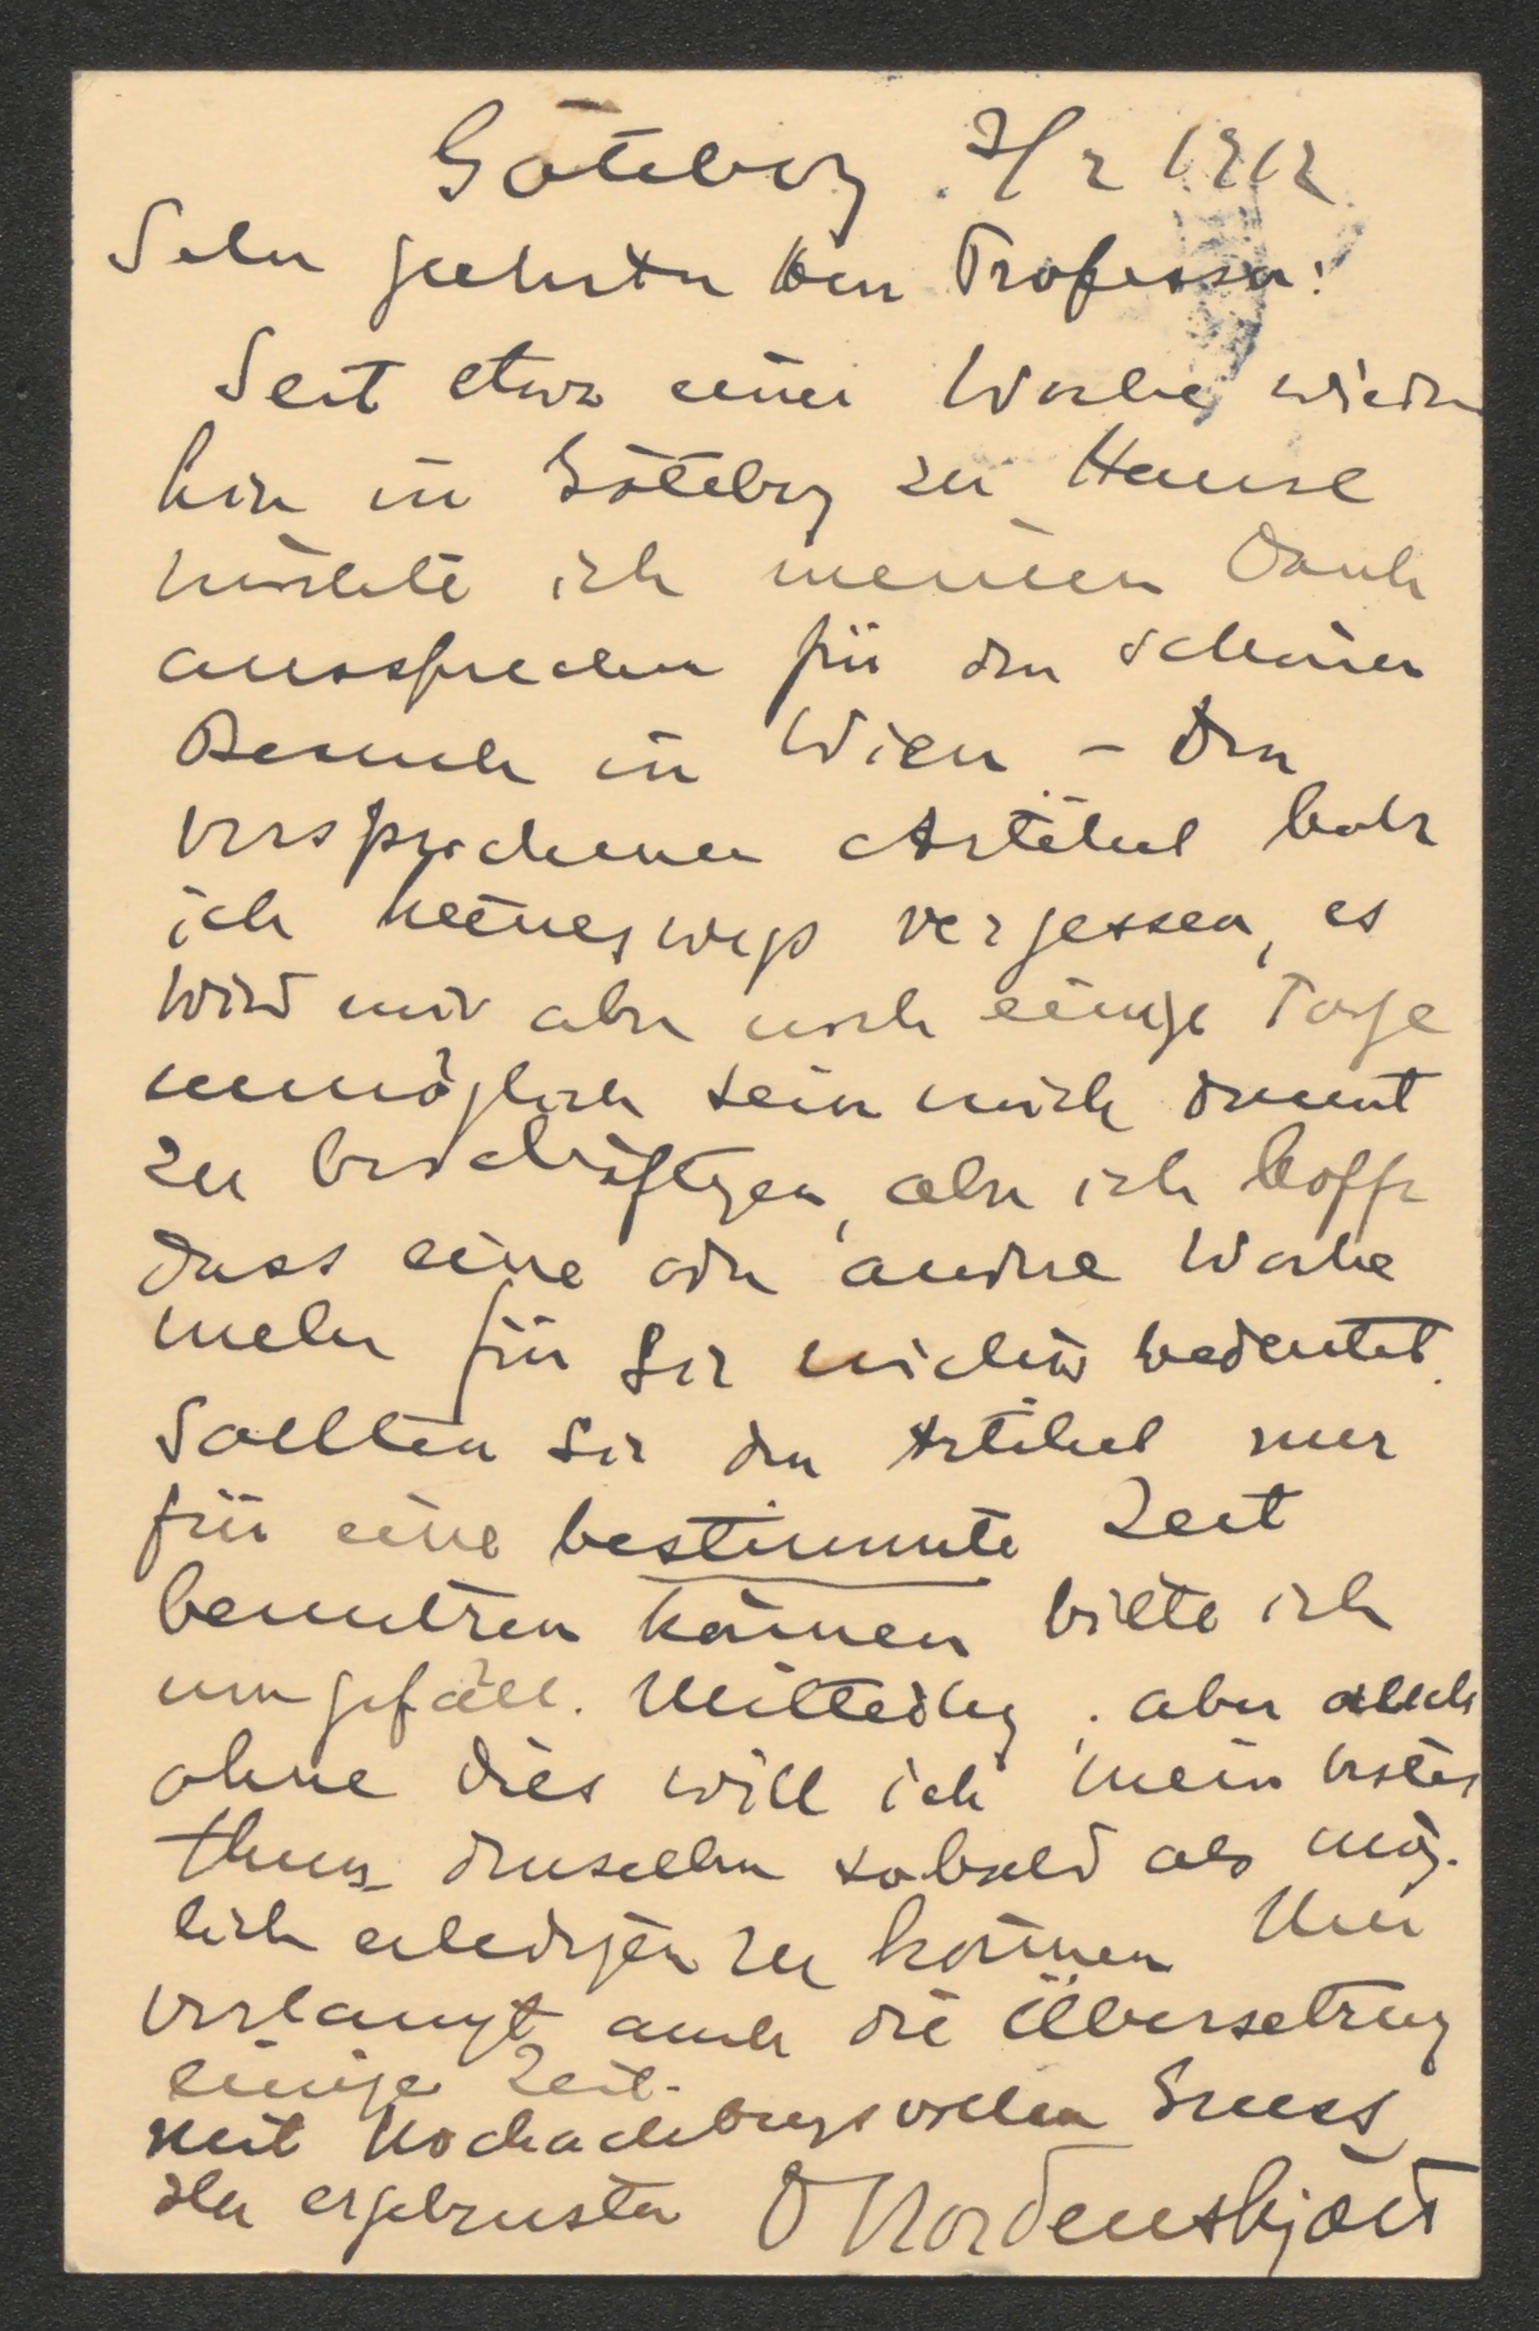 Göteborg 7/2 1912
Sehr geehrter Herr Professor!
Seit etwa einer Woche wieder
hier in Göteborg zu Hause
möchte ich meinen Dank
aussprechen für den schönen
Besuch in Wien – Den
versprochenen Artikel habe
ich keineswegs vergessen, es
wird mir aber noch einige Tage
unmöglich sein mich damit
zu beschäftigen, aber ich hoffe
dass eine oder andere Woche
mehr für Sie nichts bedeutet.
Sollten Sie den Artikel nur
für eine bestimmte Zeit
benutzen können bitte ich
um gefäll. Mitteilung, aber auch
ohne dies will ich mein bestes
thun denselben sobald als mög-
lich erledigen zu können
verlangt auch die Übersetzung
einige Zeit.
Mit hochachtungsvollem Gruss
Ihr ergebenster O Nordenskjöld